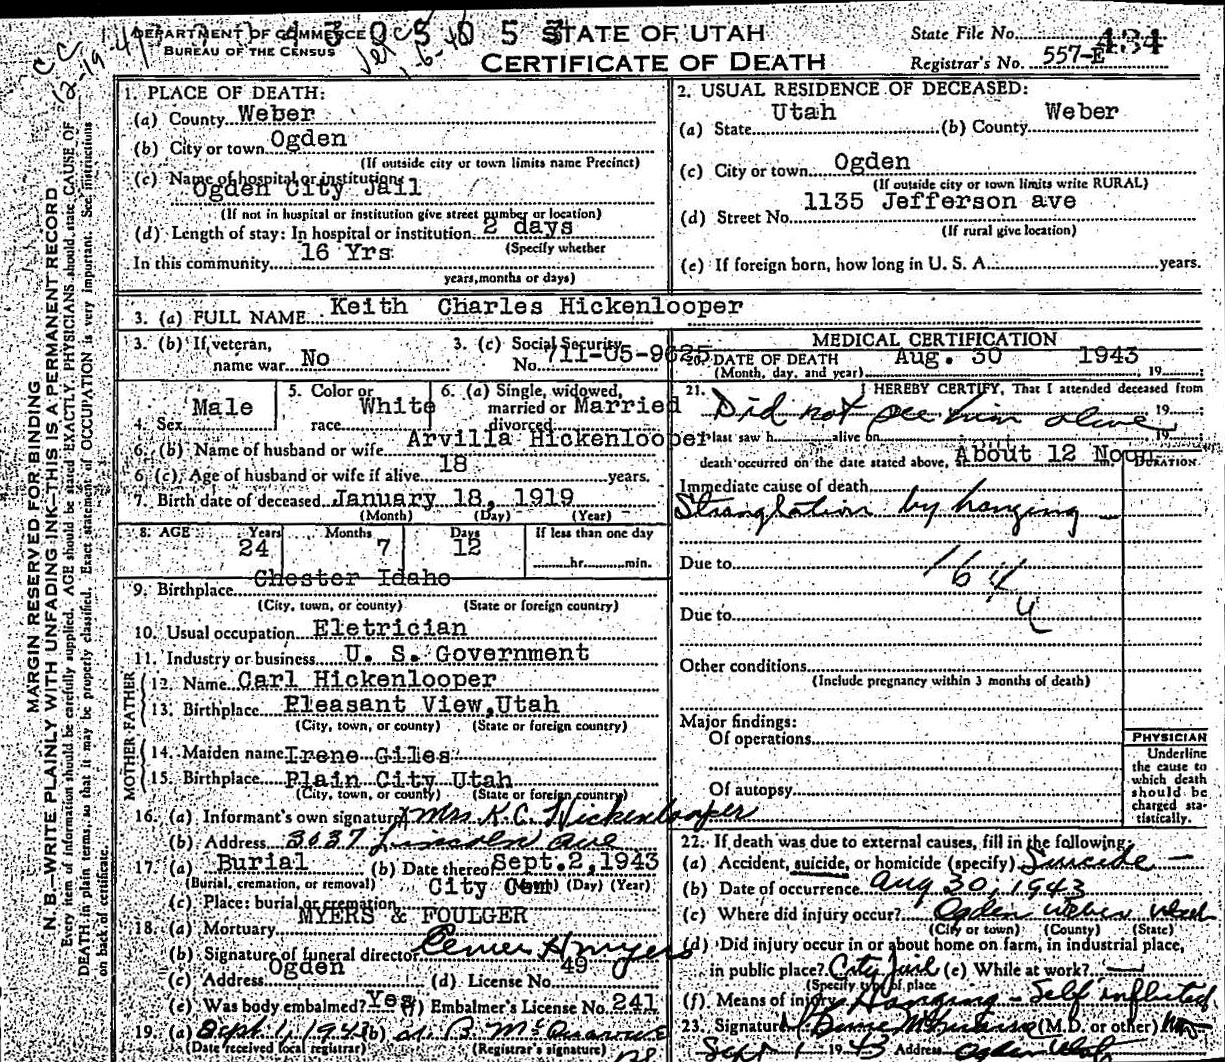 DEPARTMENT OF COMMERCE
BUREAU OF THE CENSUS
STATE OF UTAH
CERTIFICATE OF DEATH
State File No. 434
Registrar's No. 557-E
MARGIN RESERVED FOR BINDING
N. B.—WRITE PLAINLY WITH UNFADING INK—THIS IS A PERMANENT RECORD
Every item of information should be carefully supplied. AGE should be stated EXACTLY. PHYSICIANS should state CAUSE OF
DEATH in plain terms, so that it may be properly classified. Exact statement of OCCUPATION is very important. See instructions
on back of certificate.
1. PLACE OF DEATH:
(a) County Weber
(b) City or town Ogden
(If outside city or town limits name Precinct)
(c) Name of hospital or institution:
Ogden City Jail
(If not in hospital or institution give street number or location)
(d) Length of stay: In hospital or institution 2 days
(Specify whether
In this community 16 Yrs
years, months or days)
2. USUAL RESIDENCE OF DECEASED:
(a) State Utah (b) County Weber
(c) City or town Ogden
(If outside city or town limits write RURAL)
(d) Street No. 1135 Jefferson ave
(If rural give location)
(e) If foreign born, how long in U. S. A. years.
3. (a) FULL NAME Keith Charles Hickenlooper
3. (b) If veteran, name war No
3. (c) Social Security No. 711-05-9625
4. Sex Male
5. Color or race White
6. (a) Single, widowed, married or divorced Married
6. (b) Name of husband or wife Arvilla Hickenlooper
6 (c) Age of husband or wife if alive 18 years.
7. Birth date of deceased January 18, 1919
(Month) (Day) (Year)
8. AGE Years Months Days If less than one day
24 7 12 hr. min.
9. Birthplace Chester Idaho
(City, town, or county) (State or foreign country)
10. Usual occupation Eletrician
11. Industry or business U. S. Government
FATHER
12. Name Carl Hickenlooper
13. Birthplace Pleasant View, Utah
(City, town, or county) (State or foreign country)
MOTHER
14. Maiden name Irene Giles
15. Birthplace Plain City Utah
(City, town, or county) (State or foreign country)
16. (a) Informant's own signature Mrs K.C. Hickenlooper
(b) Address 3037 Lincoln ave
17. (a) Burial (b) Date thereof Sept. 2, 1943
(Burial, cremation, or removal) (Month) (Day) (Year)
(c) Place: burial or cremation City Cem
18. (a) Mortuary MYERS & FOULGER
(b) Signature of funeral director
(c) Address Ogden (d) License No. 49
(e) Was body embalmed? Yes (f) Embalmer's License No. 241
19. (a) Sept 1, 1943 (b)
(Date received local registrar) (Registrar's signature)
MEDICAL CERTIFICATION
20. DATE OF DEATH Aug. 30 1943
(Month, day, and year) 19
21. I HEREBY CERTIFY, That I attended deceased from
Did not see him alive 19
I last saw h alive on 19
death occurred on the date stated above, at About 12 Noon m.
DURATION
Immediate cause of death
Stranglation by hanging
Due to
164
Due to
Other conditions
(Include pregnancy within 3 months of death)
Major findings:
Of operations
Of autopsy
PHYSICIAN
Underline
the cause to
which death
should be
charged sta-
tistically.
22. If death was due to external causes, fill in the following:
(a) Accident, suicide, or homicide (specify) Suicide
(b) Date of occurrence Aug 30, 1943
(c) Where did injury occur? Ogden Weber Utah
(City or town) (County) (State)
(d) Did injury occur in or about home on farm, in industrial place,
in public place? City Jail (e) While at work? —
(Specify type of place
(f) Means of injury Hanging - Self inflicted
23. Signature (M.D. or other)
Sept 1 1943 Address Ogden Utah